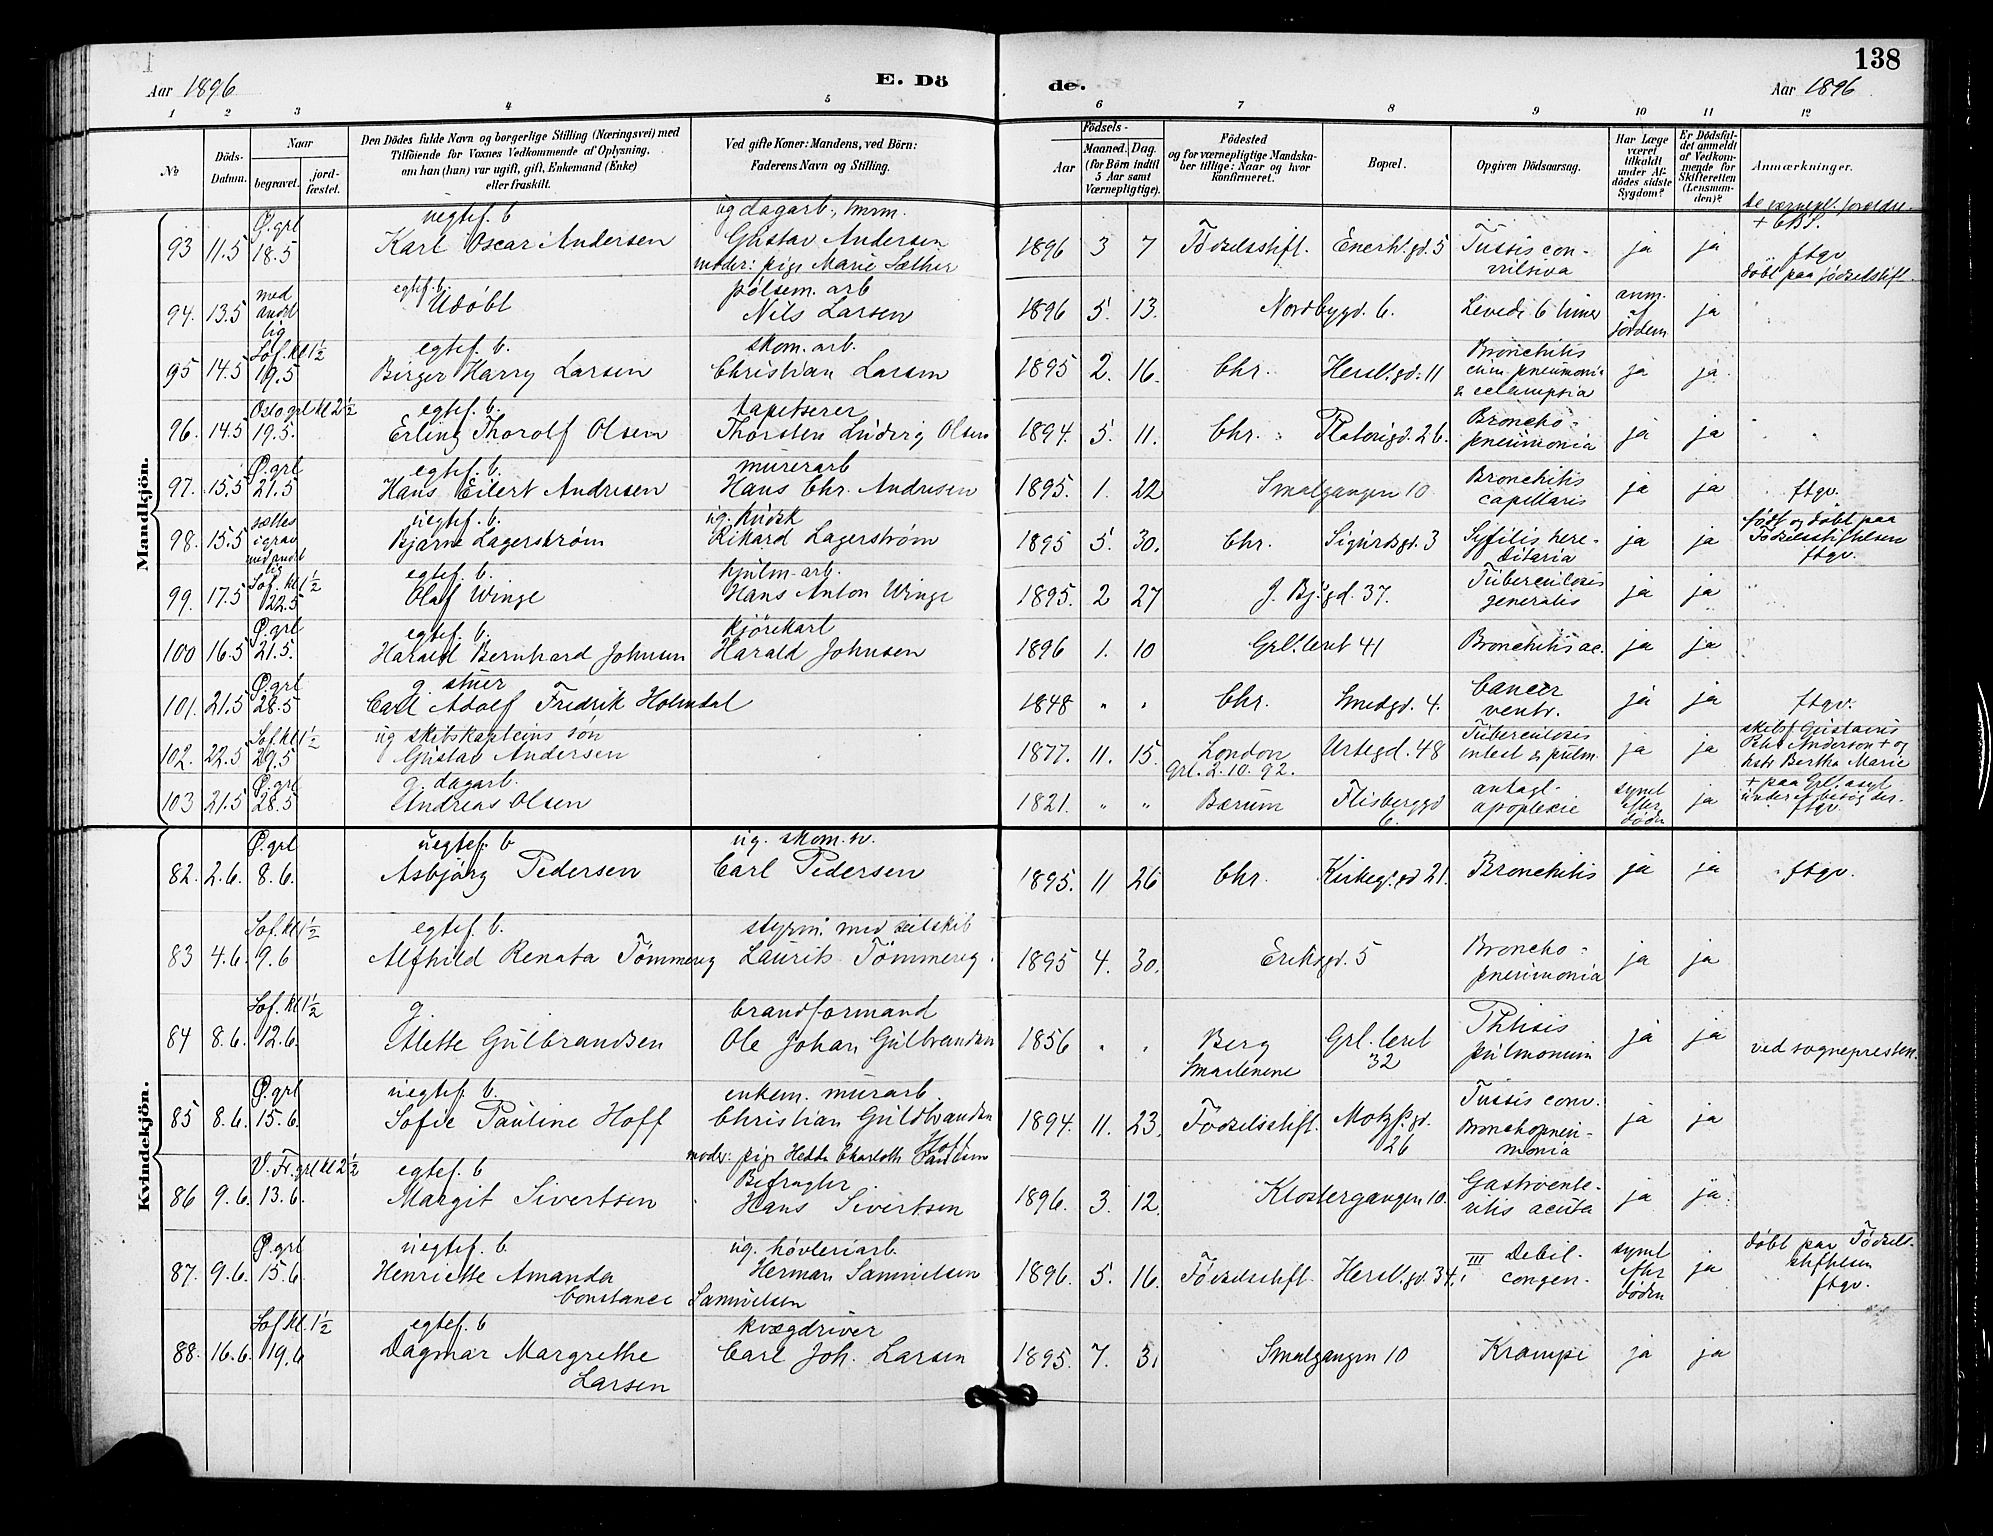 138
Aar 1896 E. Dö de. Aar 1896
1 2 3 4 5 6 7 8 9 10 11 12
No Döds-Datum. Naar begravet. jord-fæstet. Den Dödes fulde Navn og borgerlige Stilling (Næringsvei) med Tilföiende for Voxnes Vedkommende af Oplysning, om han (hun) var ugift, gift, Enkemand (Enke) eller fraskilt. Ved gifte Koner: Mandens, ved Börn: Faderens Navn og Stilling. Födsels- Aar Maaned. Dag. (for Börn indtil 5 Aar samt Værnepligtige). Födested og for værnepligtige Mandskaber tillige: Naar og hvor konfirmeret. Bopæl. Opgiven Dödsaarsag. Har Læge været tilkaldt under Afdödes sidste Sygdom? Er Dödsfaldet anmeldt af Vedkommende for Skifteretten (Lensmanden)? Anmærkninger.
Mandkjön.
Ø. grl uegtef. b ug dagarb.,
93 11.5 18.5 Karl Oscar Andersen Gustav Andersen 1896 3 7 Födselsstift. 5 Tussis con- ja ja ftgv
moder: pige Marie Sæther vulsiva döbt paa födselsstift.
med egtef. b. pölsem. arb anm.
94. 13.5 andet Udöbt Nils Larsen 1896 5. 13. Nordbygd. 6. Levede 6 timer af ja
lig jordem
Sof. kl 1½ egtef. b. skom. arb. Bronchitis
95 14.5 19.5 Birger Harry Larsen Christian Larsen 1895 2. 16. Chr. Hersl. gd. 11 cum pneumonia ja ja
& eclampsia
Oslo grl kl 2½ egtef. b. tapetserer Broncho-
96. 14.5 19.5. Erling Thorolf Olsen Thorsten Ludvig Olsen 1894. 5. 11. Chr. Platousgd. 26. pneumonia ja ja
Ø. grl egtef. b. murerarb Bronchitis
97. 15.5 21.5 Hans Eilert Andresen Hans Chr. Andresen 1895. 1. 22 Smalgangen 10 capillaris ja ja ftgv.
sættes uegtef. b. ug. kudsk född og döbt paa
98. 15.5 i grav Bjarne Lagerström Rikard Lagerström 1895 5. 30. Chr. Sigurdsgd. 3 Syfilis here- ja ja Födselsstiftelsen
med andet lig ditaria ftgv.
Sof. kl 1½ egtef. b. hjulm. arb. Tuberculosis
99. 17.5 22.5 Olaf Winge Hans Anton Winge 1895. 2 27 J. Bj. gd. 37. generalis ja ja
Ø. grl egtef. b. kjörekarl
100 16.5 21.5. Harald Bernhard Johnsen Harald Johnsen 1896 1. 10 Grl. leret 41 Bronchitis ac. ja ja
Ø. grl g. stuer Cancer
101. 21.5 28.5 Carl Adolf Fredrik Holmdal 1848 " " Chr. Smedgd. 4. ventr. ja ja ftgv.
Sof. kl 1½ ug skibskapteins sön Tuberculosis skibsf Gustavus
102. 22.5 29.5 Gustav Andersen 1877. 11. 15. London Urtegd. 48 intest & pulm. ja ja Anderson + og
Grl. 2. 10. 92. Bertha Marie
Ø. grl g. dagarb. antagl. synet + paa Grl. asyl
103 21.5 28.5 Andreas Olsen 1821. " " Bærum Flisberggd 6. apoplexie efter döden ja ftgv.
Kvindekjön.
Ø. grl uegtef. b ug. skom. sv.
82. 2.6. 8.6. Asbjörg Pedersen Carl Pedersen 1895. 11 26 Chr. Kirkeg. gd 21. Bronchitis ja ja ftgv.
Sof. kl 1½ egtef. b. styrm. med seilskib
83 4.6. 9.6 Alfhild Renata Tömmerug Laurits Tömmerug 1895 4. 30. Eriksgd. 5 Broncho-pneumonia ja ja
Sof. kl 1½ g. brandformand
84 8.6. 12.6. Alette Gulbrandsen Ole Johan Gulbrandsen 1856 " " Berg Smaalenene Grl. leret 32 Phthisis pulmonum ja ja ved sognepresten.
Ø. grl uegtef. b. enkem. murarb.
85 8.6. 15.6. Sofie Pauline Hoff Christian Guldbrandsen 1894. 11. 23. Födselsstift. Motzf. gd. 26 Tussis conv. Bronchopneumonia ja ja
moder: pige Hedda Charlotte Hoff
V. Fr. grl kl 2½ egtef. b Befragter
86 9.6. 13.6. Margit Sivertsen Hans Sivertsen 1896. 3. 12. Klostergangen 10. Gastroenteritis acuta ja ja
Ø. grl uegtef. b ug. hövleriarb. döbt paa Födsels-
87. 9.6. 15.6 Henriette Amanda Herman Samuelsen 1896. 5. 16. Födselsstift. Hersl. gd. 34. III Debil. congen. synet efter döden ja stiftelsen
Constance Samuelsen ftgv.
Sof kl. 1½ egtef. b kvægdriver
88. 16.6. 19.6 Dagmar Margrethe Carl Joh. Larsen 1895. 7. 31 Smalgangen 10 Krampe ja ja
Larsen